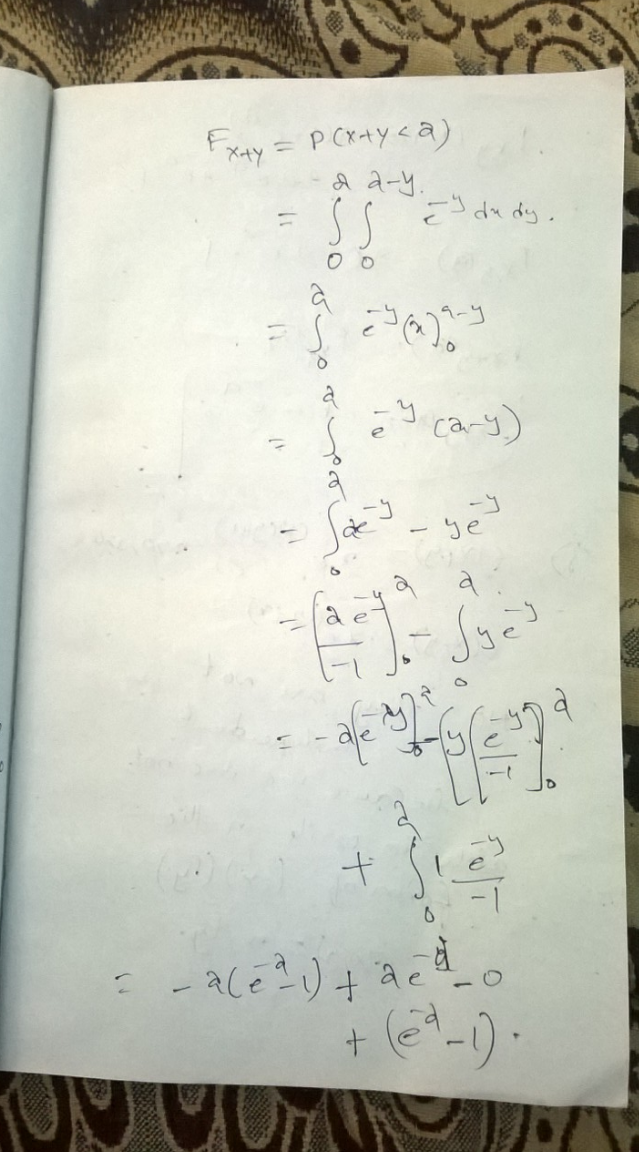 F_{x+y} = P(x+y < a)
= ∫_0^a ∫_0^{a-y} e^{-y} dx dy.
= ∫_0^a e^{-y} (x)]_0^{a-y}
= ∫_0^a e^{-y} (a-y)
= ∫_0^a ae^{-y} - ye^{-y}
= [a e^{-y} / -1]_0^a - ∫_0^a y e^{-y}
= -a[e^{-y}]_0^a - [y [e^{-y} / -1]]_0^a
+ ∫_0^a 1 e^{-y} / -1
= -a(e^{-a} -1) + ae^{-a} - 0
+ (e^{-a} - 1).